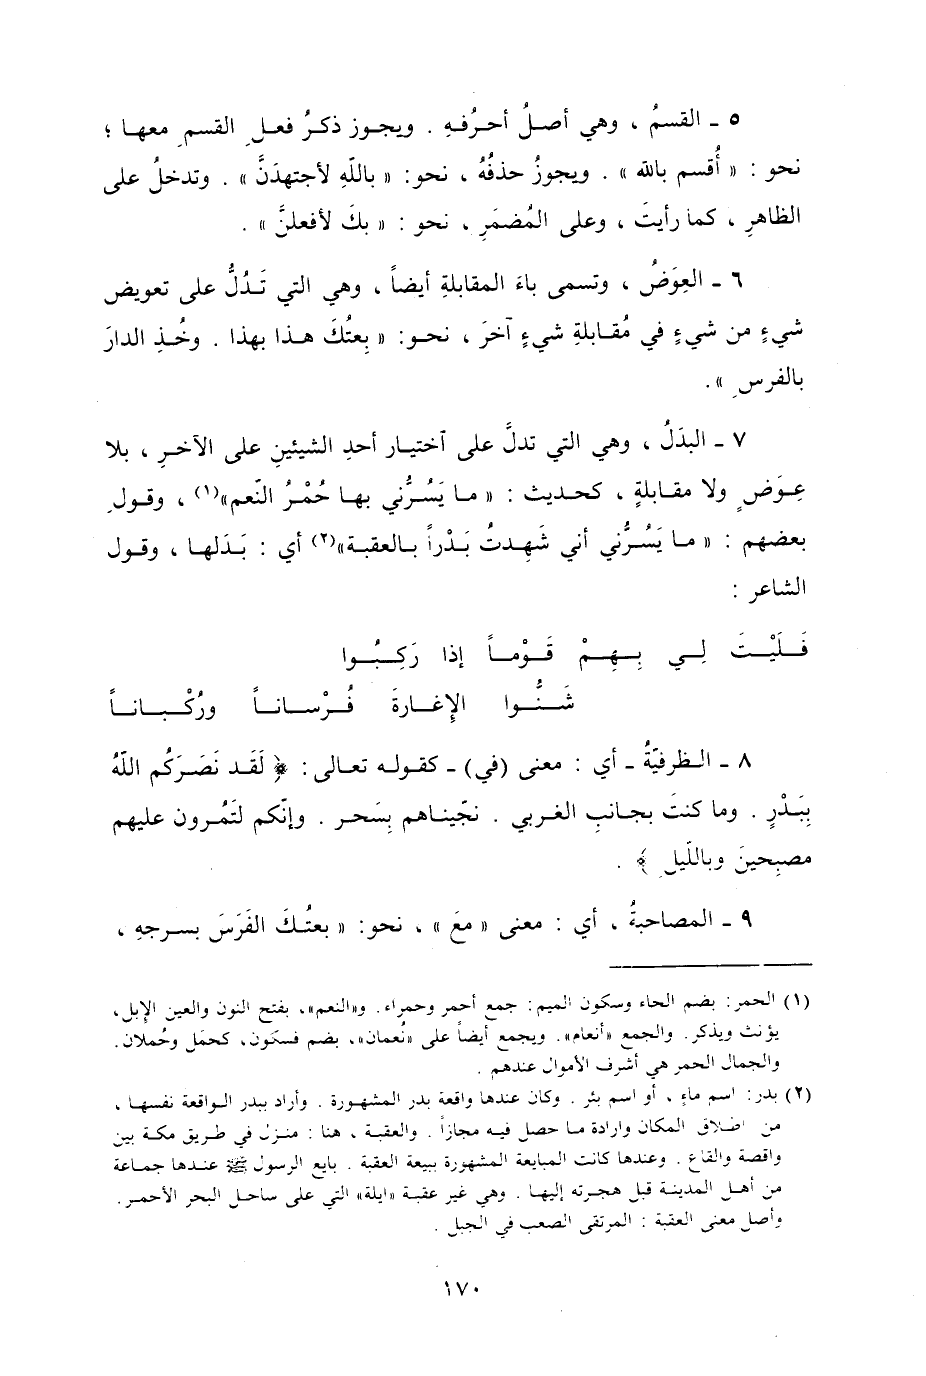 ٥ ـ القسمُ ، وهي أصلُ أحرُفهِ . ويجوز ذكرُ فعلِ القسمِ معها ؛
نحو : « أُقسم بالله » . ويجوزُ حذفُهُ ، نحو: « باللّهِ لأجتهدَنَّ » . وتدخلُ على
الظاهرِ ، كما رأيتَ ، وعلى المُضمَرِ ، نحو : « بكَ لأفعلنَّ » .
٦ ـ العِوَضُ ، وتسمى باءَ المقابلةِ أيضاً ، وهي التي تَدُلُّ على تعويض
شيءٍ من شيءٍ في مُقابلةِ شيءٍ آخرَ ، نحو: « بِعتُكَ هذا بهذا . وخُذِ الدارَ
بالفرسِ » .
٧ ـ البدَلُ ، وهي التي تدلَّ على آختيار أحدِ الشيئينِ على الآخرِ ، بلا
عِوَضٍ ولا مقابلةٍ ، كحديث : « ما يَسُرُّني بها حُمْرُ النّعم»(١) ، وقولِ
بعضهم : « ما يَسُرُّني أني شَهِدتُ بَدْراً بالعقبة»(٢) أي : بَدَلها ، وقول
الشاعر :
فَلَيْتَ لِي بِهِمْ قَوْماً إذا رَكِبُوا
شَنُّوا الإِغارةَ فُرْساناً ورُكْباناً
٨ ـ الظرفيّةُ ـ أي : معنى (في) ـ كقوله تعالى: ﴿ لَقَد نَصَرَكُم اللّهُ
بِبَدْرٍ . وما كنتَ بجانبِ الغربي . نجّيناهم بِسَحر . وإنّكم لَتَمُرون عليهم
مصبِحينَ وباللّيلِ ﴾ .
٩ ـ المصاحبةُ ، أي : معنى « معَ » ، نحو: « بعتُكَ الفَرَسَ بسرجهِ ،
(١) الحمر: بضم الحاء وسكون الميم: جمع أحمر وحمراء. و«النعم»، بفتح النون والعين الإبل،
يؤنث ويذكر. والجمع «أنعام». ويجمع أيضاً على «نُعمان»، بضم فسكون، كحمَل وحُملان.
والجمال الحمر هي أشرف الأموال عندهم .
(٢) بدر: اسم ماءٍ ، أو اسم بئر . وكان عندها واقعة بدر المشهورة . وأراد ببدر الواقعة نفسها ،
من اطلاق المكان وارادة ما حصل فيه مجازاً . والعقبة ، هنا : منزل في طريق مكة بين
واقصة والقاع . وعندها كانت المبايعة المشهورة ببيعة العقبة . بايع الرسول ﷺ عندها جماعة
من أهل المدينة قبل هجرته إليها . وهي غير عقبة «ايلة» التي على ساحل البحر الأحمر.
وأصل معنى العقبة : المرتقى الصعب في الجبل .
١٧٠